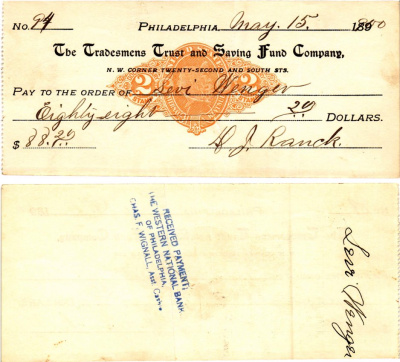 No. 94 PHILADELPHIA, May. 15. 189
The Tradesmens Trust and Saving Fund Company,
N. W. CORNER TWENTY-SECOND AND SOUTH STS.
PAY TO THE ORDER OF Levi Wenger
Eighty eight 20 DOLLARS.
$ 88.20 D. J. Ranck.
2 2
RECEIVED PAYMENT:
THE WESTERN NATIONAL BANK
OF PHILADELPHIA,
CHAS. F. WIGNALL, Asst. Cashr.
Levi Wenger